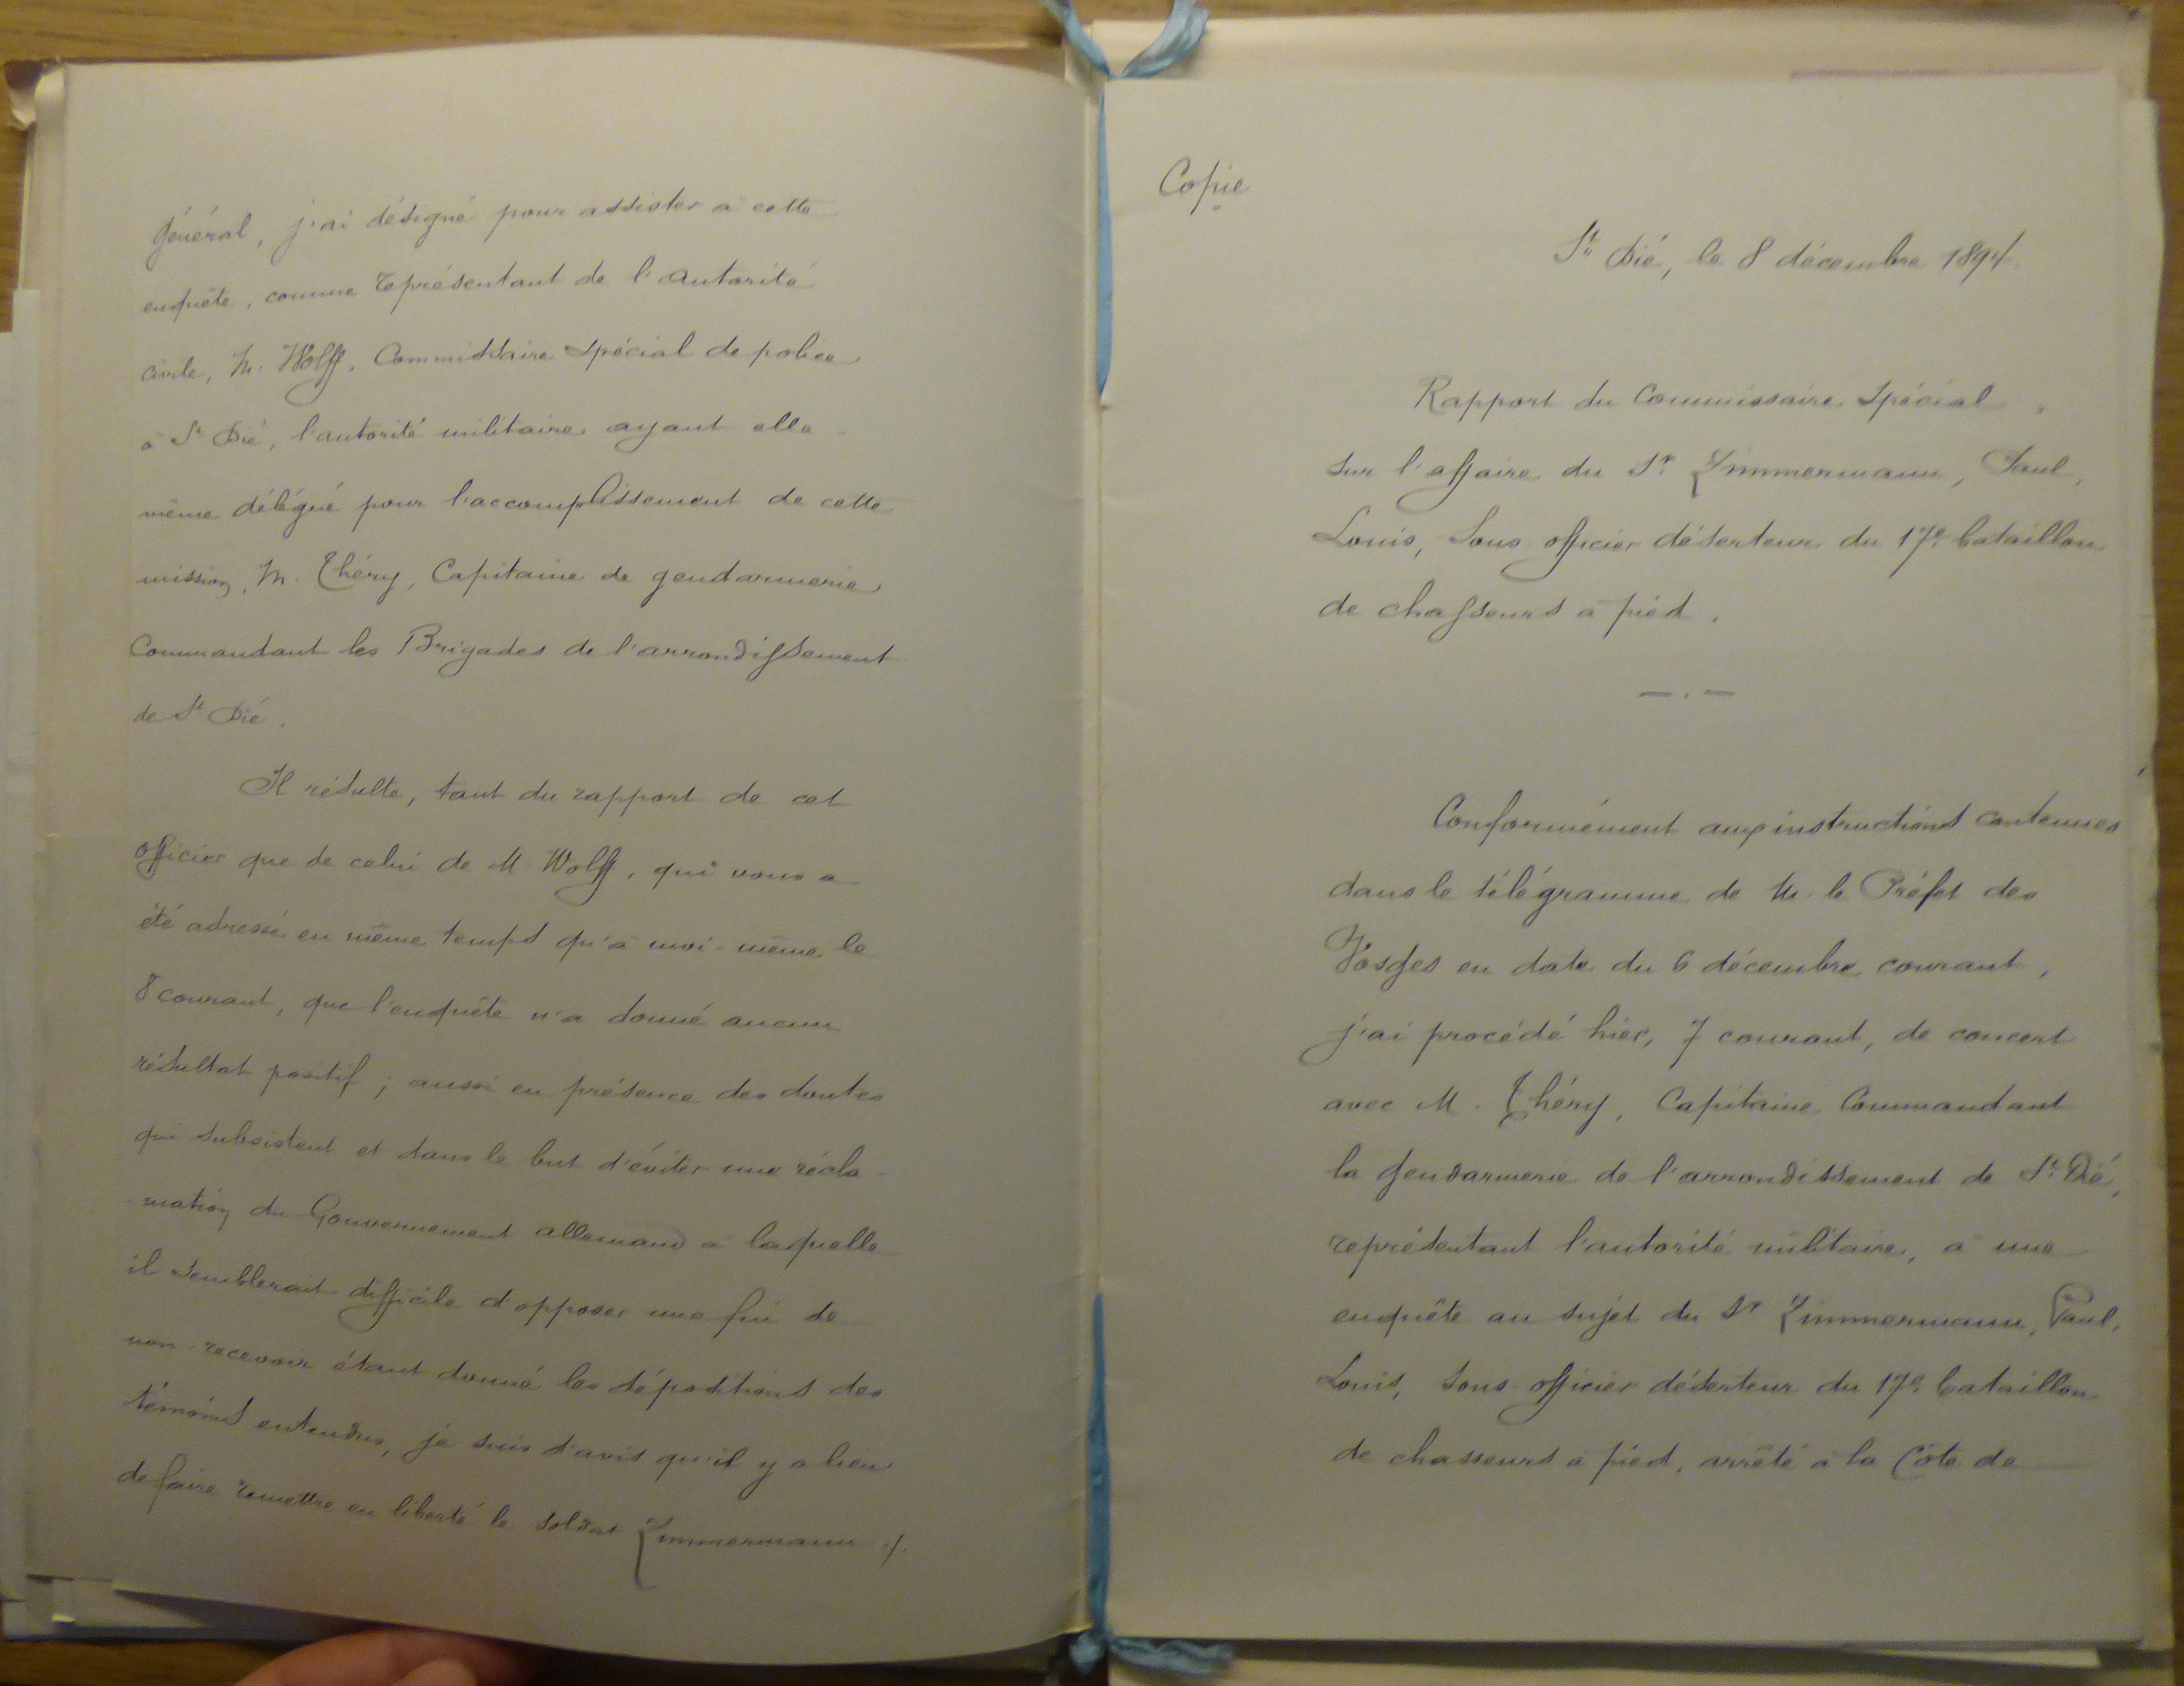 général, j'ai désigné pour assister à cette
enquête, comme représentant de l'autorité
civile, M. Wolff, Commissaire Spécial de police
à St Dié, l'autorité militaire ayant elle-
même délégué pour l'accomplissement de cette
mission, M. Théry, Capitaine de gendarmerie
Commandant les Brigades de l'arrondissement
de St Dié.
Il résulte, tant du rapport de cet
officier que de celui de M. Wolff, qui vous a
été adressé en même temps qu'à moi-même le
8 courant, que l'enquête n'a donné aucun
résultat positif; aussi en présence des doutes
qui subsistent et dans le but d'éviter une récla-
mation du Gouvernement allemand à laquelle
il semblerait difficile d'opposer une fin de
non-recevoir étant donné les dépositions des
témoins entendus, je suis d'avis qu'il y a lieu
de faire remettre en liberté le soldat Zimmermann ./.
Copie
St Dié, le 8 décembre 1894.
Rapport du Commissaire Spécial
sur l'affaire du Sr. Zimmermann, Paul,
Louis, Sous-officier déserteur du 17e bataillon
de chasseurs à pied.
— . —
Conformément aux instructions contenues
dans le télégramme de M. le Préfet des
Vosges en date du 6 décembre courant,
j'ai procédé hier, 7 courant, de concert
avec M. Théry, Capitaine Commandant
la gendarmerie de l'arrondissement de St. Dié,
représentant l'autorité militaire, à une
enquête au sujet du Sr Zimmermann, Paul,
Louis, Sous-officier déserteur du 17e bataillon
de chasseurs à pied, arrêté à la Côte de